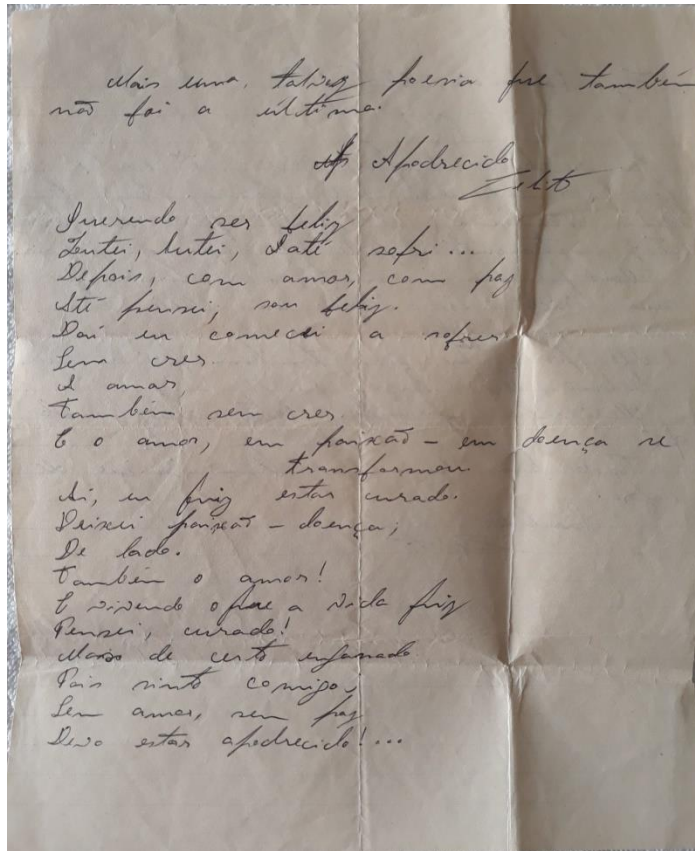 Mais uma, talvez poesia que também
não foi a última.
Apodrecido
Zelito
Querendo ser feliz
Lutei, lutei, até sofri...
Depois, com amor, com paz
Até pensei, sou feliz.
Daí eu comecei a sofrer
Sem crer
A amar,
Também sem crer.
E o amor, em paixão - em doença se
transformou.
Aí, eu fiz estar curado.
Deixei paixão - doença;
De lado.
Também o amor!
E vivendo o que a vida fiz
Pensei, curado!
Mas de certo enganado
Pois sinto comigo,
Sem amor, sem paz
Devo estar apodrecido!...